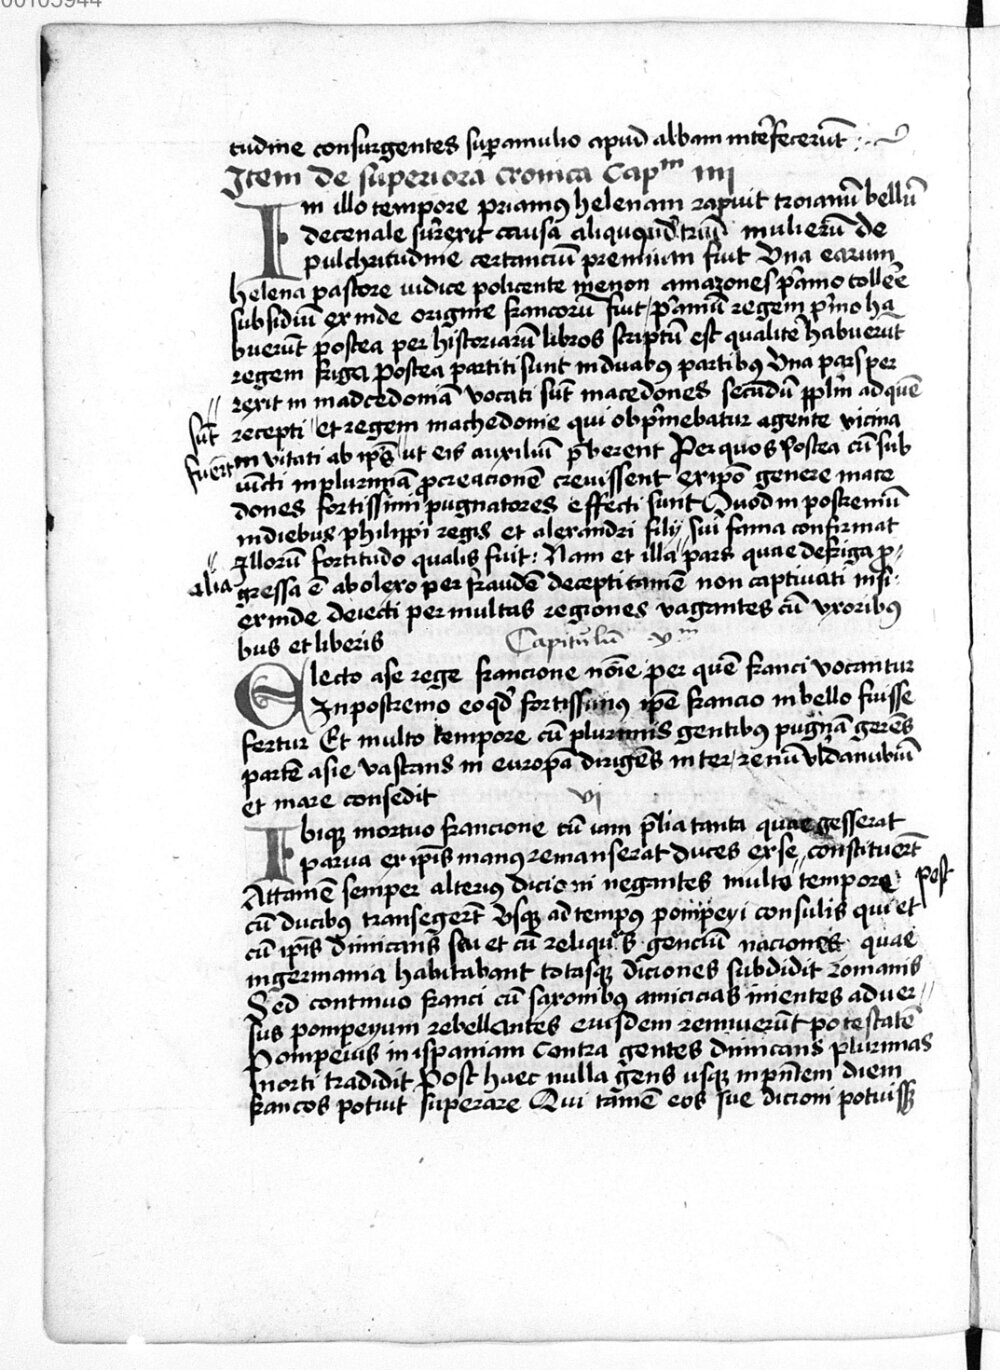 00105944
tudine consurgentes sup amulio apud albam interfecerūt
Item de superiora cronica Capᵐ IIII
In illo tempore priamꝰ helenam rapuit troianū bellū
decenale surrexit causa mulierū de
pulchritudine certanciū premium fuit Vna earum
helena pastore iudice policente menon amazones p̄amo tollēe
subsidiū exinde origine francorū fuit p̄amū regem p̄mo ha
buerūt postea per historiarū libros scriptū est qualitē habuerūt
regem friga postea partiti sunt in duabꝰ partibꝰ Vna pars per
rexit in madcedoniā vocati sūt macedones secūdū pplm ad quē
sūt
recepti et regem machedonie qui obp̄mebatur agente vicina
fuerūt
in vitati ab ip̄s ut eis auxiliū p̄berent Per quos Postea cū sub
iūcti in plurimā pcreacionē crevissent ex ip̄o genere mace
dones fortissimi pugnatores effecti sunt Quod in postremū
in diebus philippi regis et alexandri filij sui fama confirmat
Illorū fortitudo qualis fuit: Nam et illa pars quae de friga p
alia
gressa ē ab olexo per fraudē decepti tamē non captivati nisi
exinde deiecti per multas regiones vagantes cū vxoribꝰ
bus et liberis
Capitulū vᵐ
Electo a se rege francione nōie per quē franci vocantur
In postremo eo qd̄ fortissimꝰ ip̄e francio in bello fuisse
fertur Et multo tempore cū plurimis gentibꝰ pugnā gerēs
partē asie vastans in europā dirigēs inter renū vl danubiū
et mare consedit
vi
Ibiqꝫ mortuo francione cū iam p̄lia tanta quae gesserat
parua ex ip̄is manꝰ remanserat duces ex se constituerūt
Attamē semper alterius dicioni negantes multo tempore
post
cū ducibꝰ transegerūt Vsqꝫ ad tempꝰ pompeyi consulis qui et
cū ip̄is dimicans seu et cū reliquis genciū naciones quae
in germania habitabant totasqꝫ diciones subdidit romanis
Sed continuo franci cū saxonibꝰ amicicias inientes aduer
sus pompeyum rebellantes eiusdem rennuerūt potestatē
Pompeius in ispaniam contra gentes dimicans plurimas
morti tradidit Post haec nulla gens usqꝫ in pn̄tem diem
francos potuit superare Qui tamē eos sue dicioni potuissꝫ